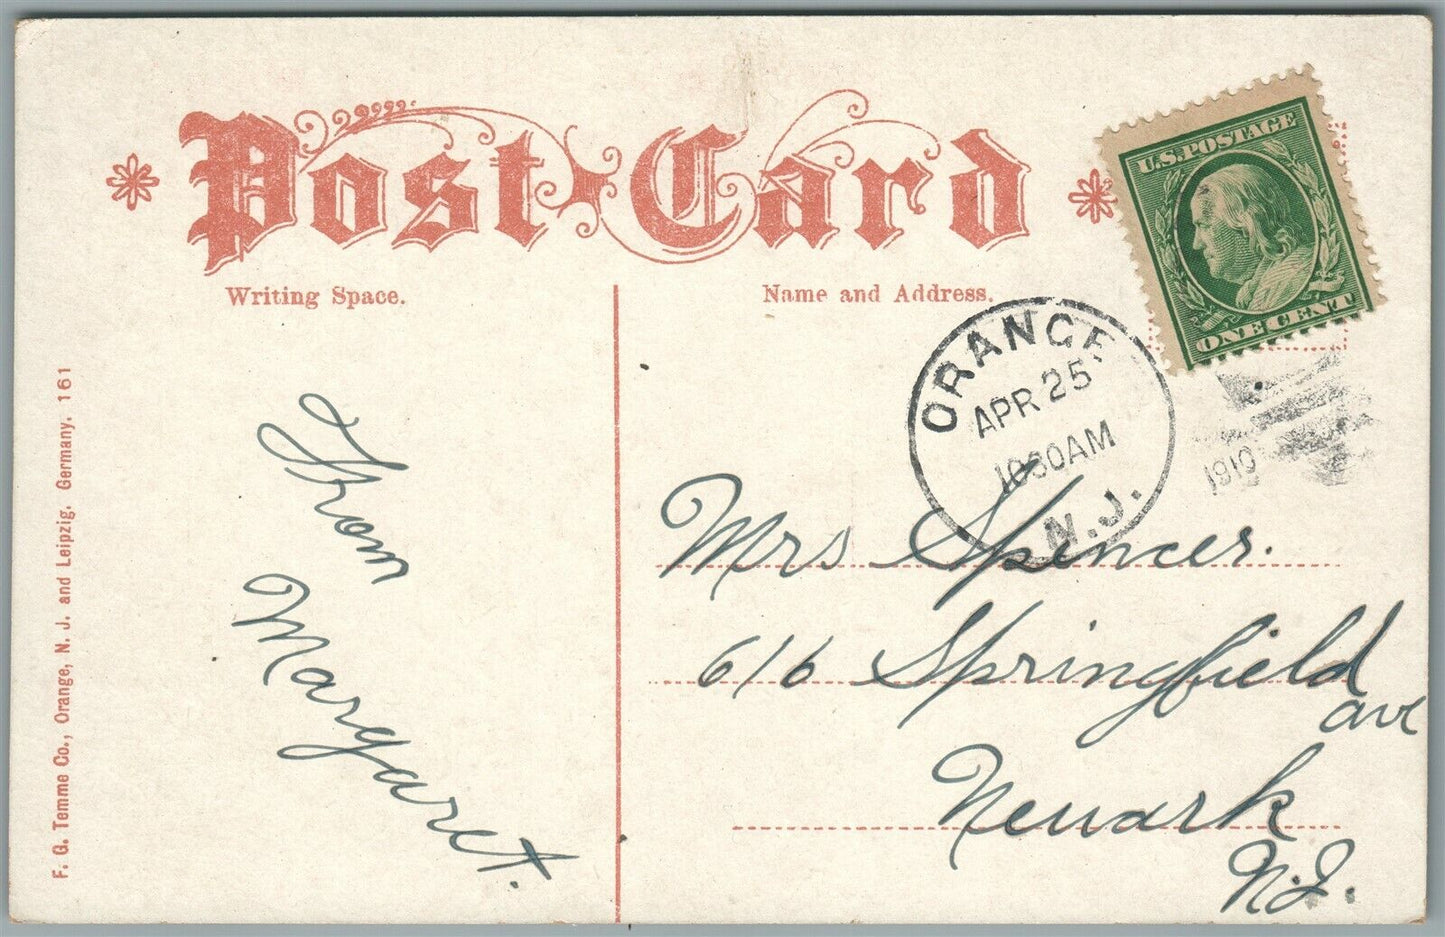 Post Card
Writing Space.
Name and Address.
U.S. POSTAGE
ONE CENT
ORANGE,
APR 25
1030AM
N.J.
1910
From
Margaret.
Mrs Spencer.
616 Springfield
ave
Newark
N.J.
F. G. Temme Co., Orange, N. J. and Leipzig, Germany. 161